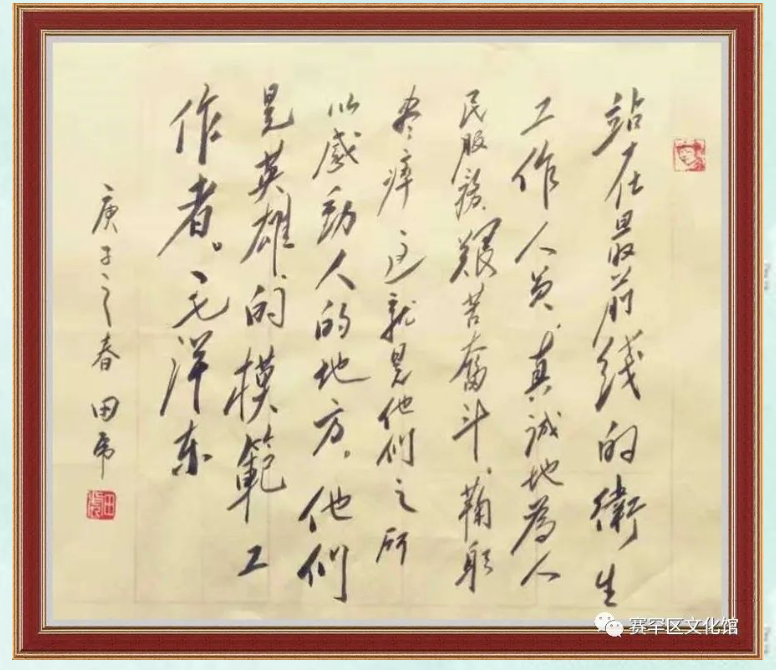 站在最前线的衛生
工作人员、真诚地為人
民服務、艱苦奮斗、鞠躬
尽瘁 这就是他们之所
以感動人的地方、他们
是英雄的模範工
作者。毛泽东
庚子之春 田虎
赛罕区文化馆